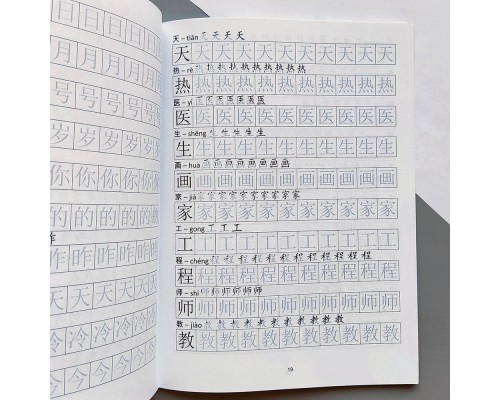 日日日日
月月月月月
号号号号
岁岁岁岁
你你你你
的的的的
昨昨昨昨
天天天天天
冷冷冷冷
今今今今
天 – tiān 天天天天
天天天天天天天天天天
热 – rè 热热热热热热热热热热
热热热热热热热热热热
医 – yī 医医医医医医医
医医医医医医医医医医
生 – shēng 生生生生生
生生生生生生生生生生
画 – huà 画画画画画画画画
画画画画画画画画画画
家 – jiā 家家家家家家家家家家
家家家家家家家家家家
工 – gong 工工工
工工工工工工工工工工
程 – chéng 程程程程程程程程程程程程
程程程程程程程程程程
师 – shī 师师师师师师
师师师师师师师师师师
教 – jiào 教教教教教教教教教教教
教教教教教教教教教教
19